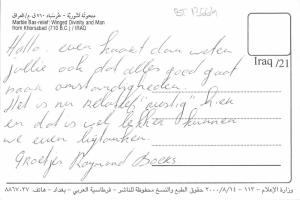 منحوتة آشورية - خرسباد ٧١٠ ق.م / العراق
Marble Bas-relief: Winged Divinity and Man
from Khorsabad (710 B.C.) / IRAQ
Iraq /21
Hallo, even kaart dan weten
jullie ook dat alles goed gaat
naar omstandigheden.
Het is nu relatief "rustig" hier
en dat is wel lekker kunnen
we even bijtanken.
Groetjes Raymond
وزارة الإعلام - ١١٢ - ٢٠٠٠/٨/١٤ حقوق الطبع والنسخ محفوظة للناشر - قرطاسية العربي - بغداد - هاتف: ٨٨٦٧٠٢٧